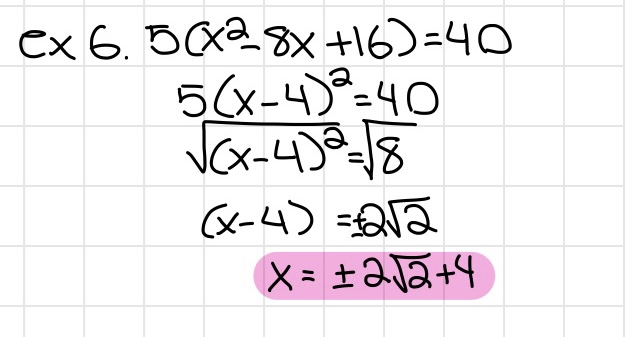 ex 6. 5(x²-8x+16)=40
5(x-4)²=40
√(x-4)²=√8
(x-4) =±2√2
x = ±2√2+4